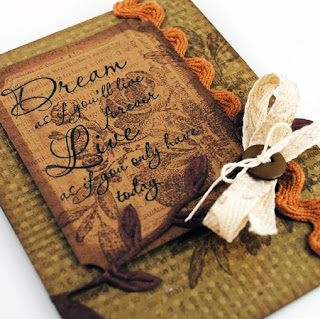 Dream
as if you'll live
forever
Live
as if you only have
today